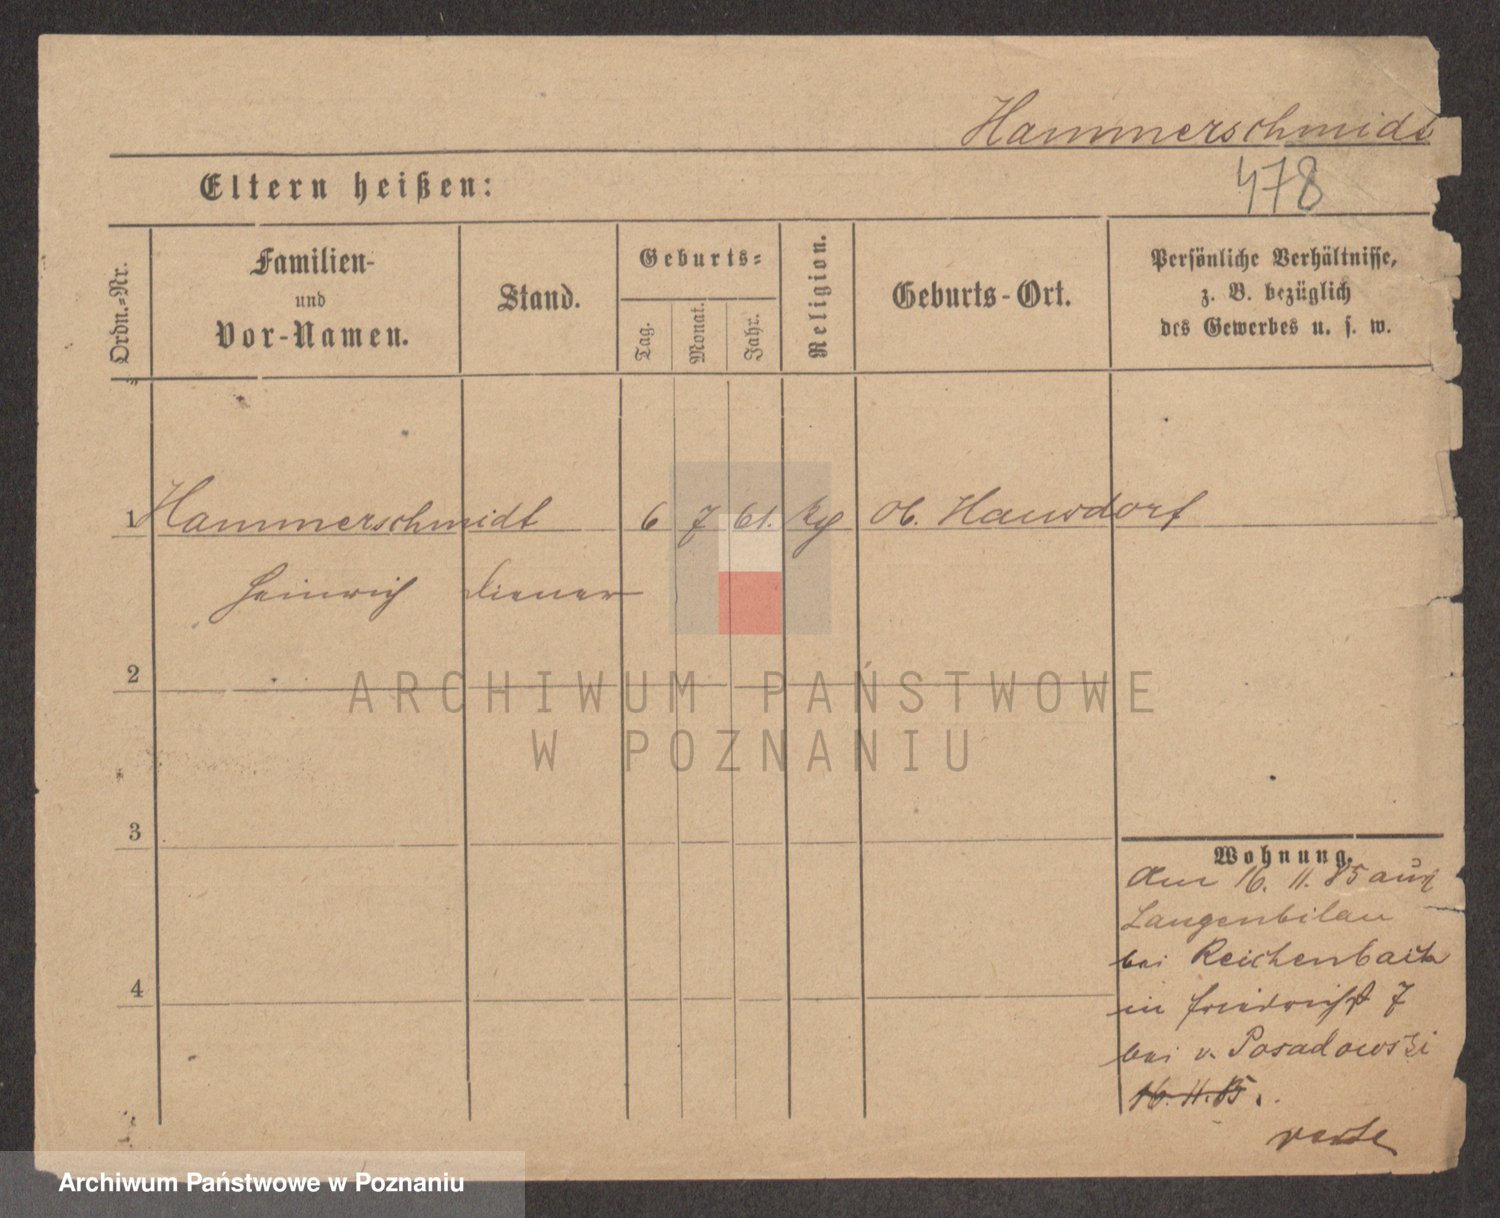 Hammerschmidt
478
Eltern heißen:
Ordn.=Nr.
Familien-
und
Vor-Namen.
Stand.
Geburts=
Tag.
Monat.
Jahr.
Religion.
Geburts-Ort.
Persönliche Verhältnisse,
z. B. bezüglich
des Gewerbes u. s. w.
1 Hammerschmidt 6 7 61. Ob. Hauwdorf
Heinrich Diener
2
ARCHIWUM PAŃSTWOWE
W POZNANIU
3
Wohnung.
Am 16. 11. 85 aus
Langenbilau
bei Reichenbach
4
in Friedrichst 7
bei v. Posadowski
16. 11. 85.
verte
Archiwum Państwowe w Poznaniu